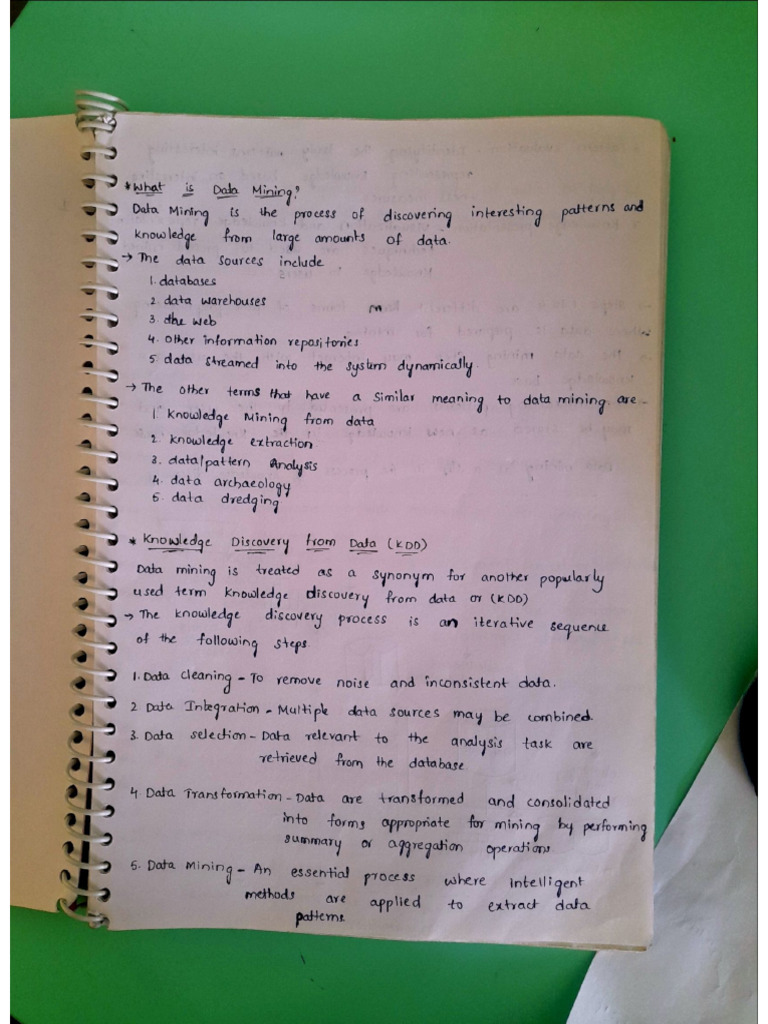 * What is Data Mining?
Data Mining is the process of discovering interesting patterns and
knowledge from large amounts of data.
→ The data sources include
1. databases
2 data warehouses
3. the web
4. other information repositories
5. data streamed into the system dynamically.
→ The other terms that have a similar meaning to data mining are-
1. knowledge Mining from data
2 knowledge extraction
3. data/pattern Analysis
4. data archaeology
5. data dredging
* Knowledge Discovery from Data (KDD)
Data mining is treated as a synonym for another popularly
used term knowledge discovery from data or (KDD)
→ The knowledge discovery process is an iterative sequence
of the following steps.
1. Data cleaning - To remove noise and inconsistent data.
2 Data Integration - Multiple data sources may be combined.
3. Data selection - Data relevant to the analysis task are
retrieved from the database
4 Data Transformation - Data are transformed and consolidated
into forms appropriate for mining by performing
summary or aggregation operations
5. Data Mining - An essential process where intelligent
methods are applied to extract data
patterns